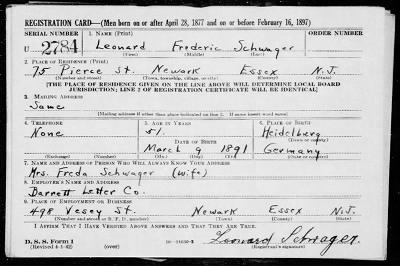 REGISTRATION CARD—(Men born on or after April 28, 1877 and on or before February 16, 1897)
SERIAL NUMBER 1. NAME (Print) ORDER NUMBER
U 2784 Leonard Frederic Schwager
(First) (Middle) (Last)
2. PLACE OF RESIDENCE (Print)
75 Pierce St. Newark Essex N.J.
(Number and street) (Town, township, village, or city) (County) (State)
[THE PLACE OF RESIDENCE GIVEN ON THE LINE ABOVE WILL DETERMINE LOCAL BOARD
JURISDICTION; LINE 2 OF REGISTRATION CERTIFICATE WILL BE IDENTICAL]
3. MAILING ADDRESS
Same
[Mailing address if other than place indicated on line 2. If same insert word same]
4. TELEPHONE 5. AGE IN YEARS 6. PLACE OF BIRTH
None 51. Heidelberg
DATE OF BIRTH (Town or county)
March 9 1891 Germany
(Exchange) (Number) (Mo.) (Day) (Yr.) (State or country)
7. NAME AND ADDRESS OF PERSON WHO WILL ALWAYS KNOW YOUR ADDRESS
Mrs. Freda Schwager (Wife)
8. EMPLOYER'S NAME AND ADDRESS
Barrett Letter Co.
9. PLACE OF EMPLOYMENT OR BUSINESS
498 Vesey St. Newark Essex N.J.
(Number and street or R. F. D. number) (Town) (County) (State)
I AFFIRM THAT I HAVE VERIFIED ABOVE ANSWERS AND THAT THEY ARE TRUE.
D. S. S. Form 1 Leonard Schwager.
(Revised 4-1-42) (over) (Registrant's signature)